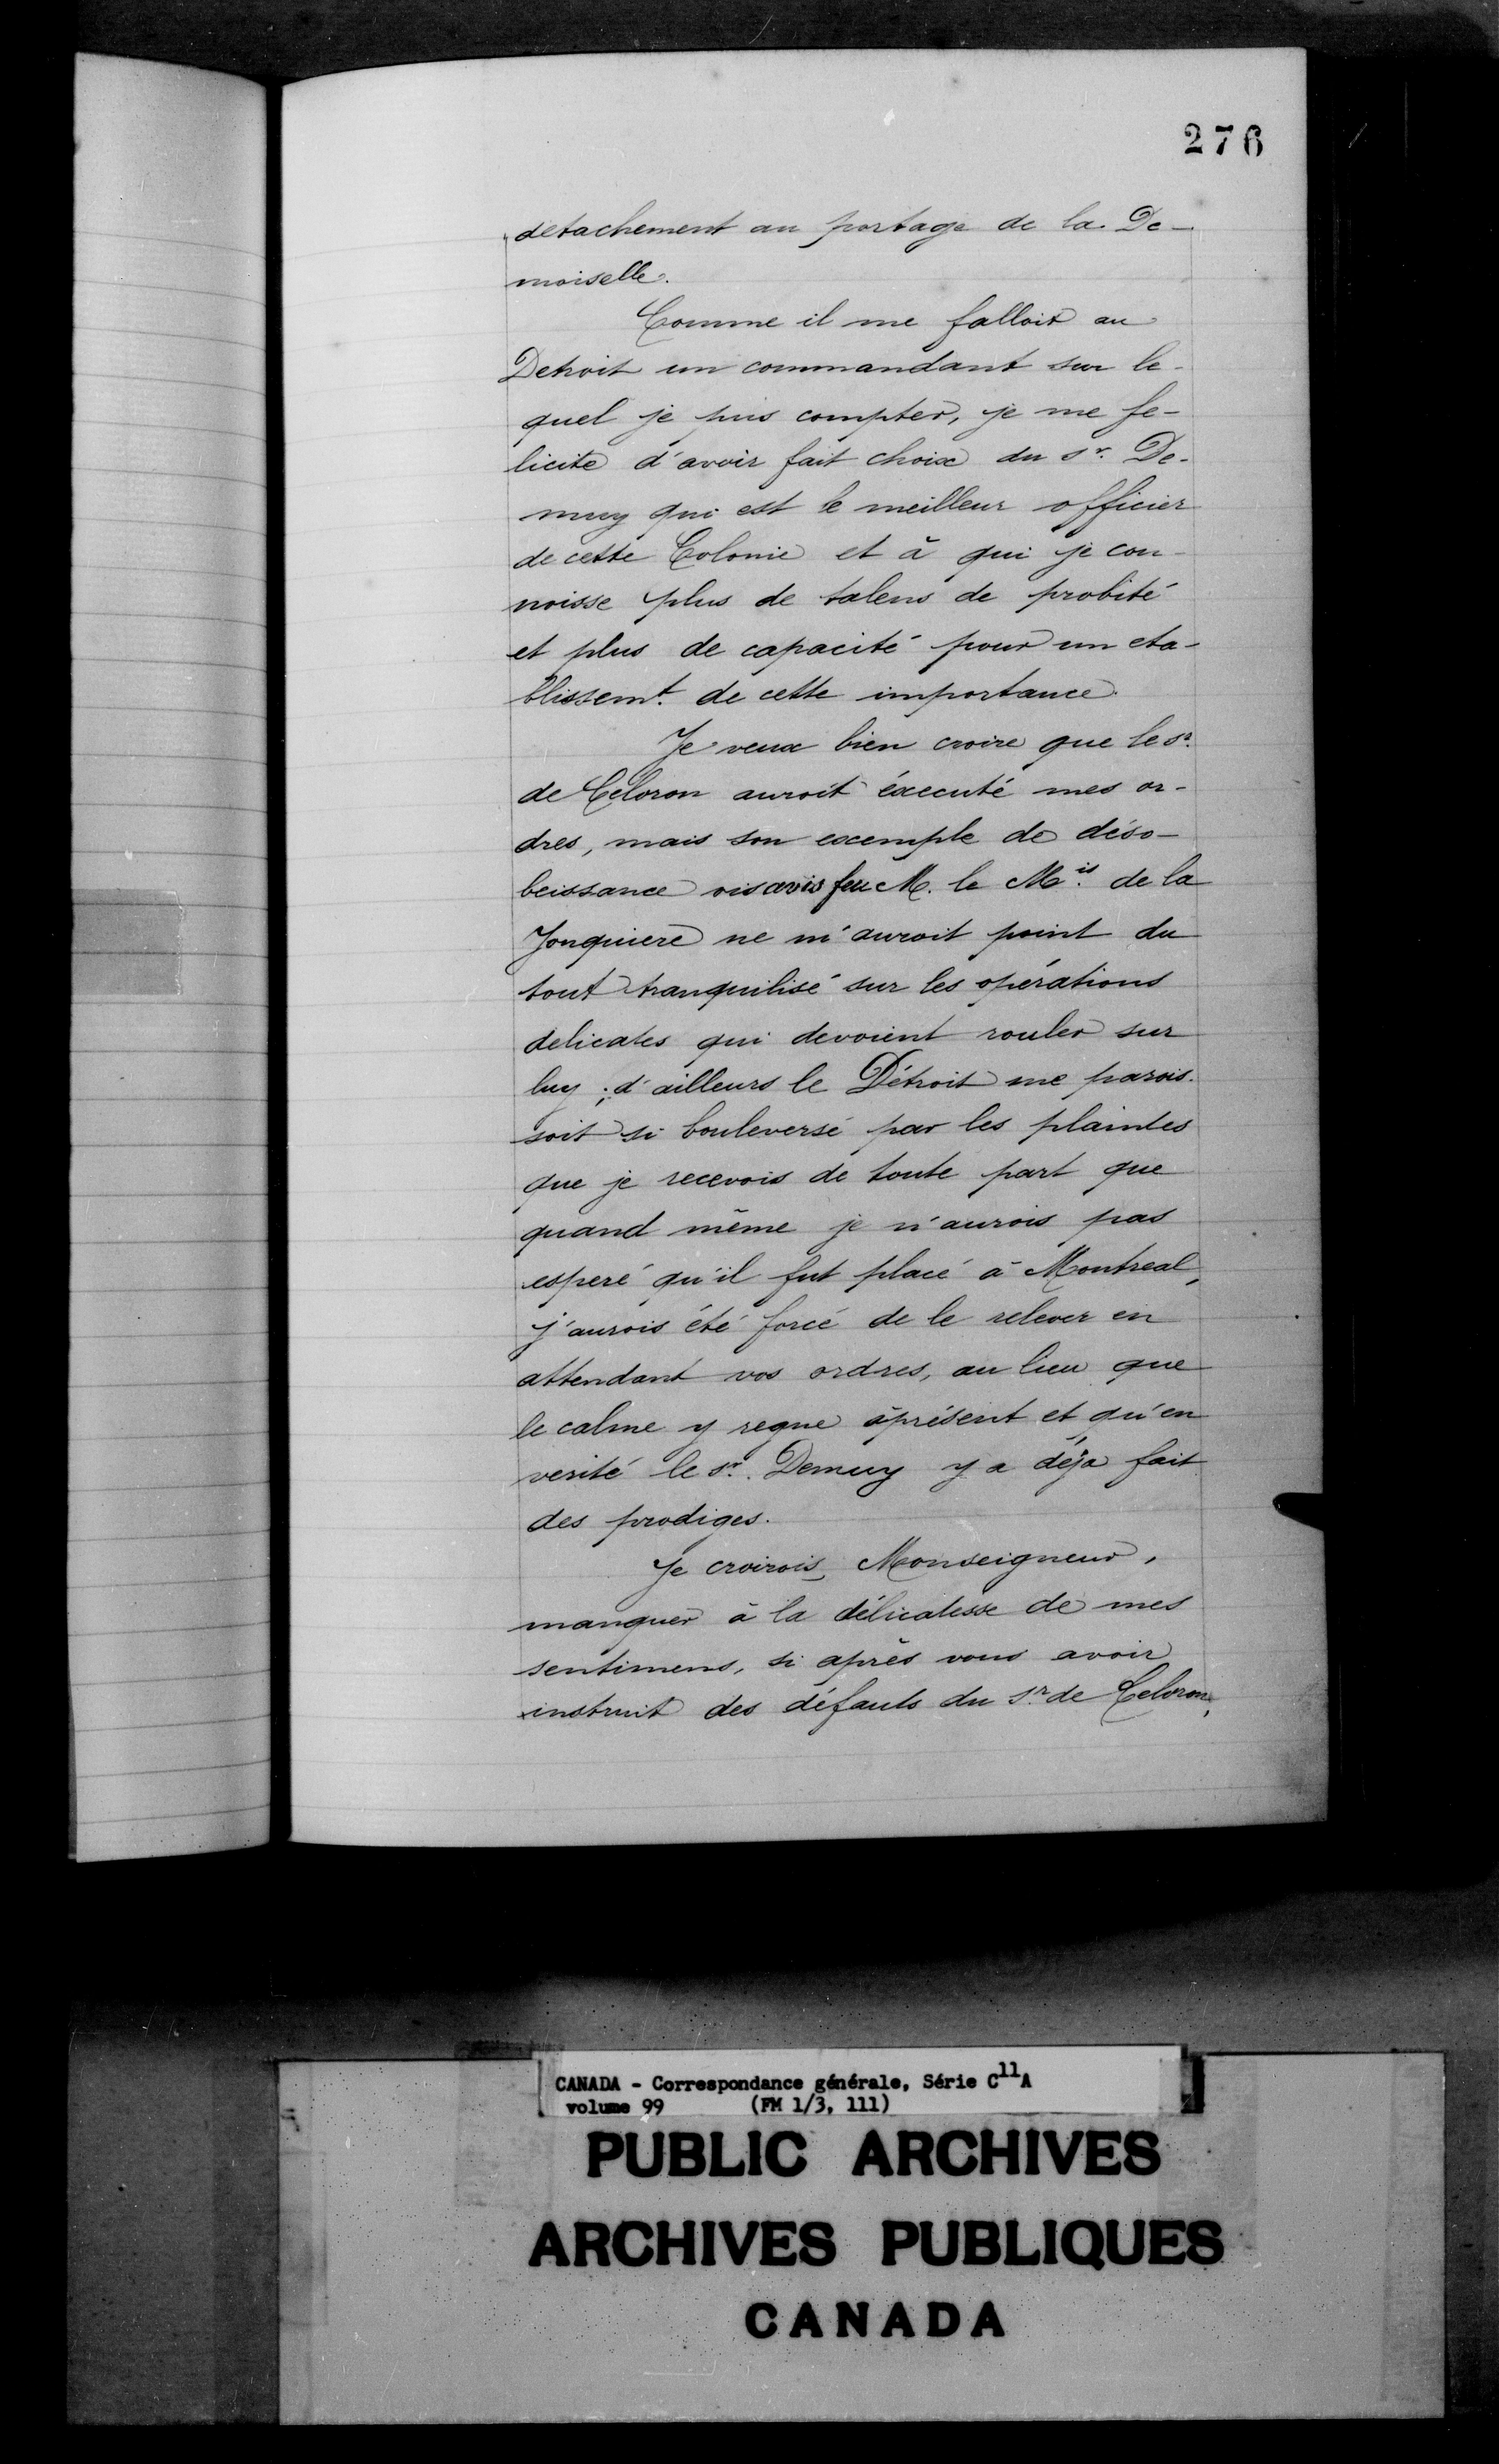 276
detachement au portage de la De-
moiselle.
Comme il me falloit au
Detroit un commandant sur le-
quel je pus compter, je me fe-
licite d'avoir fait choix du sr. De-
muy qui est le meilleur officier
de cette Colonie et à qui je con-
noisse plus de talens de probité
et plus de capacité pour un eta-
blissemt. de cette importance.
Je veux bien croire que le sr.
de Celoron auroit éxecuté mes or-
dres, mais son exemple de déso-
beissance visavis feu M. le Mis. de la
Jonquiere ne m'auroit point du
tout tranquilisé sur les opérations
delicates qui devoient rouler sur
luy; d'ailleurs le Détroit me parois-
soit si bouleversé par les plaintes
que je recevois de toute part que
quand même je n'aurois pas
esperé qu'il fut placé à Montreal,
j'aurois été forcé de le relever en
attendant vos ordres, au lieu que
le calme y regne àprésent et qu'en
verité le sr. Demuy y a déja fait
des prodiges.
Je croirois, Monseigneur,
manquer à la délicatesse de mes
sentimens, si après vous avoir
instruit des défauts du sr. de Celoron,
CANADA - Correspondance générale, Série C11A
volume 99 (FM 1/3, 111)
PUBLIC ARCHIVES
ARCHIVES PUBLIQUES
CANADA